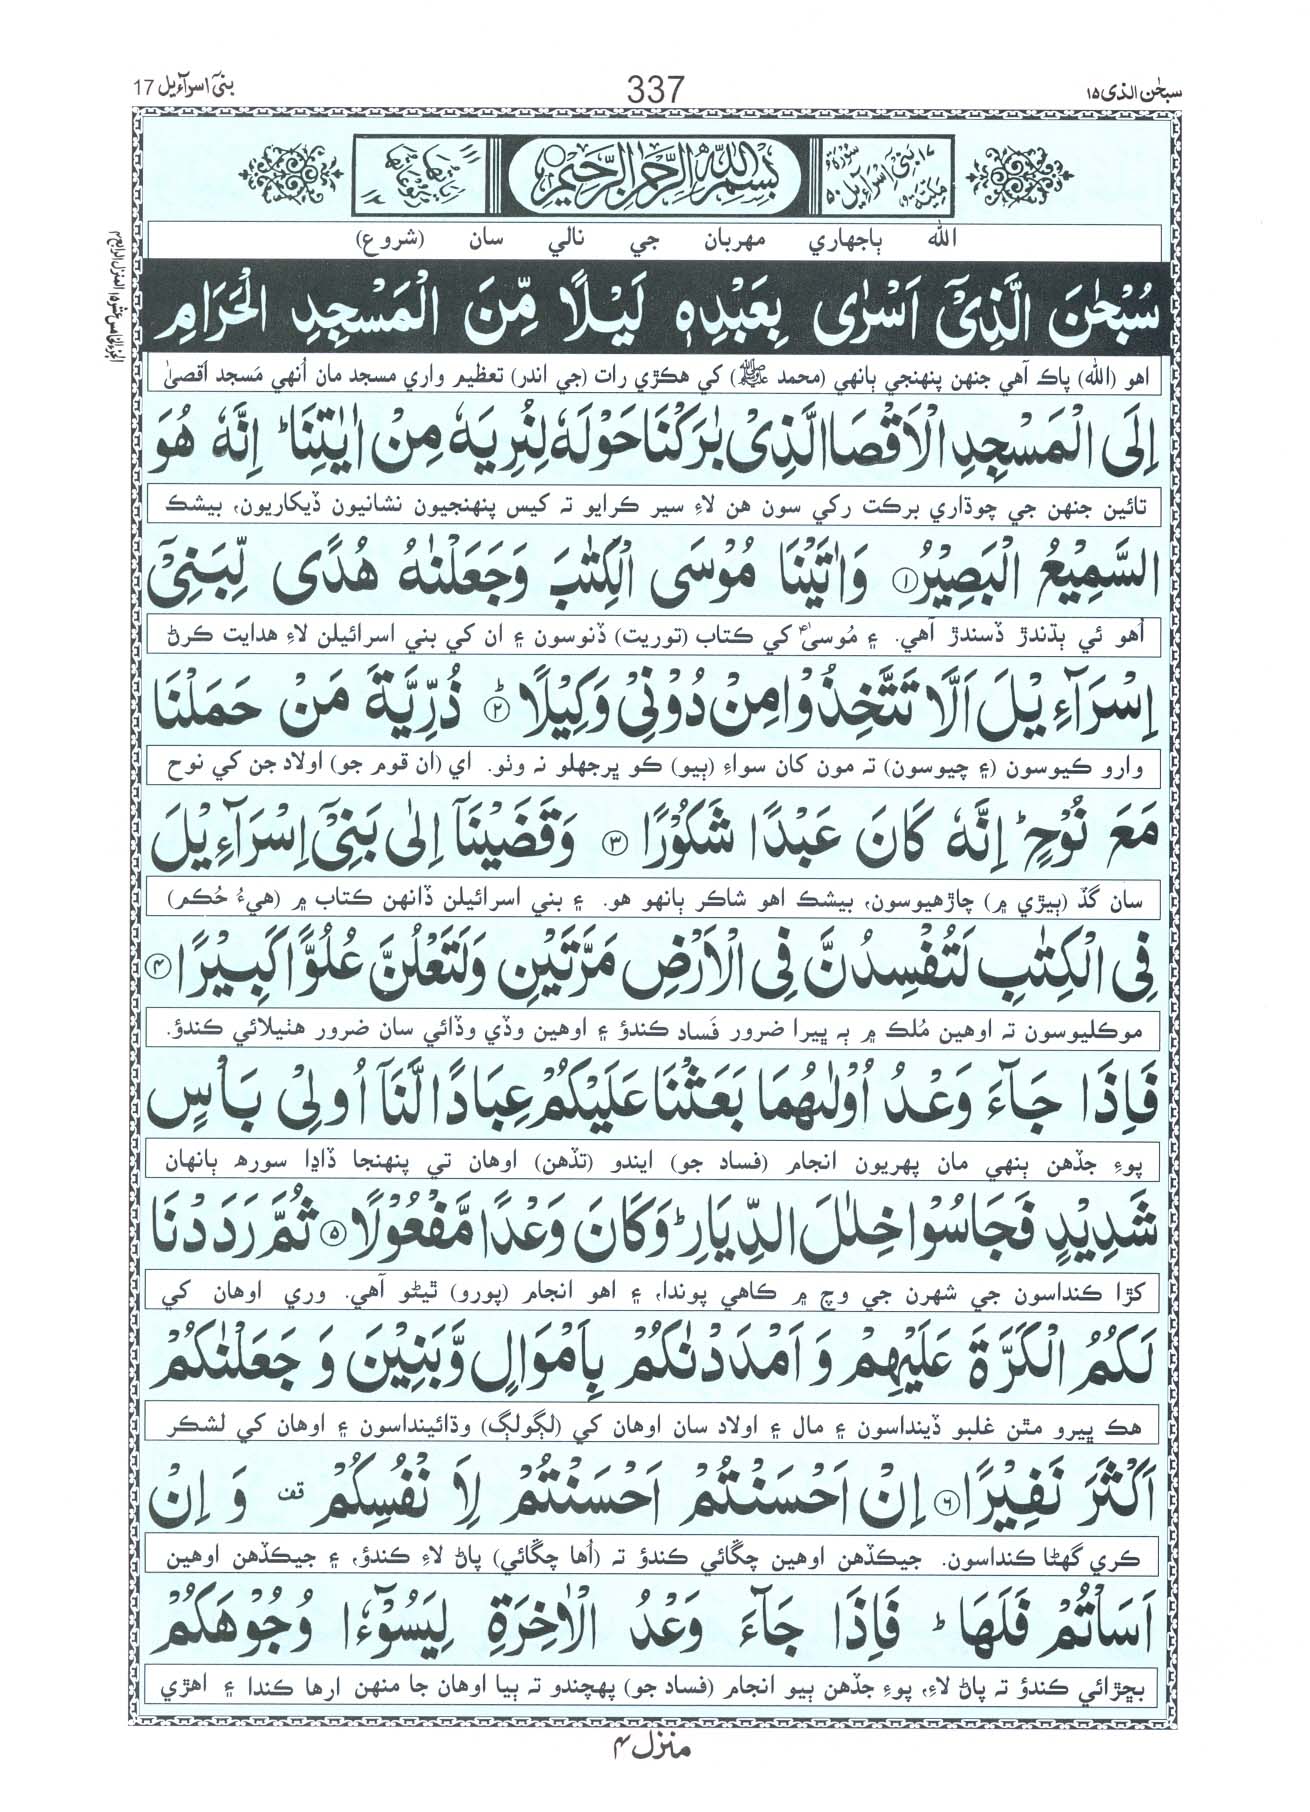 سبحٰن الذی ۱۵
337
بنیٓ اسرآءیل 17
۱۷ سُوْرَةُ بَنِیْٓ اِسْرَآءِیْلَ مَکِّیَّةٌ ۵۰
بِسْمِ اللّٰهِ الرَّحْمٰنِ الرَّحِیْمِ
الله ٻاجهاري مهربان جي نالي سان (شروع)
سُبْحٰنَ الَّذِیْٓ اَسْرٰی بِعَبْدِهٖ لَیْلًا مِّنَ الْمَسْجِدِ الْحَرَامِ
اهو (الله) پاڪ آهي جنهن پنهنجي ٻانهي (محمد ﷺ) کي هڪڙي رات (جي اندر) تعظيم واري مسجد مان اُنهي مَسجد اَقصيٰ
اِلَی الْمَسْجِدِ الْاَقْصَا الَّذِیْ بٰرَکْنَا حَوْلَهٗ لِنُرِیَهٗ مِنْ اٰیٰتِنَا ؕ اِنَّهٗ هُوَ
تائين جنهن جي چوڌاري برڪت رکي سون هن لاءِ سير ڪرايو ته کيس پنهنجيون نشانيون ڏيکاريون، بيشڪ
السَّمِیْعُ الْبَصِیْرُ ﴿۱﴾ وَاٰتَیْنَا مُوْسَی الْکِتٰبَ وَجَعَلْنٰهُ هُدًی لِّبَنِیْٓ
اُهو ئي ٻڌندڙ ڏسندڙ آهي. ۽ مُوسيٰ؏ کي ڪتاب (توريت) ڏنوسون ۽ ان کي بني اسرائيلن لاءِ هدايت ڪرڻ
اِسْرَآءِیْلَ اَلَّا تَتَّخِذُوْا مِنْ دُوْنِیْ وَکِیْلًا ﴿۲﴾ؕ ذُرِّیَّةَ مَنْ حَمَلْنَا
وارو ڪيوسون (۽ چيوسون) ته مون کان سواءِ (ٻيو) ڪو پرجهلو نه وٺو. اي (ان قوم جو) اولاد جن کي نوح
مَعَ نُوْحٍ ؕ اِنَّهٗ کَانَ عَبْدًا شَکُوْرًا ﴿۳﴾ وَقَضَیْنَآ اِلٰی بَنِیْٓ اِسْرَآءِیْلَ
سان گڏ (ٻيڙي ۾) چاڙهيوسون، بيشڪ اهو شاڪر ٻانهو هو. ۽ بني اسرائيلن ڏانهن ڪتاب ۾ (هيءُ حُڪم)
فِی الْکِتٰبِ لَتُفْسِدُنَّ فِی الْاَرْضِ مَرَّتَیْنِ وَلَتَعْلُنَّ عُلُوًّا کَبِیْرًا ﴿۴﴾
موڪليوسون ته اوهين مُلڪ ۾ ٻه ڀيرا ضرور فَساد ڪندؤ ۽ اوهين وڏي وڏائي سان ضرور هٺيلائي ڪندؤ.
فَاِذَا جَآءَ وَعْدُ اُوْلٰىهُمَا بَعَثْنَا عَلَیْکُمْ عِبَادًا لَّنَآ اُولِیْ بَاْسٍ
پوءِ جڏهن ٻنهي مان پهريون انجام (فساد جو) ايندو (تڏهن) اوهان تي پنهنجا ڏاڍا سورهه ٻانهان
شَدِیْدٍ فَجَاسُوْا خِلٰلَ الدِّیَارِ ؕ وَکَانَ وَعْدًا مَّفْعُوْلًا ﴿۵﴾ ثُمَّ رَدَدْنَا
کڙا ڪنداسون جي شهرن جي وچ ۾ ڪاهي پوندا، ۽ اهو انجام (پورو) ٿيڻو آهي. وري اوهان کي
لَکُمُ الْکَرَّةَ عَلَیْهِمْ وَ اَمْدَدْنٰکُمْ بِاَمْوَالٍ وَّبَنِیْنَ وَ جَعَلْنٰکُمْ
هڪ ڀيرو مٿن غلبو ڏينداسون ۽ مال ۽ اولاد سان اوهان کي (لڳولڳ) وڌائينداسون ۽ اوهان کي لشڪر
اَکْثَرَ نَفِیْرًا ﴿۶﴾ اِنْ اَحْسَنْتُمْ اَحْسَنْتُمْ لِاَنْفُسِکُمْ قف وَ اِنْ
ڪري گهڻا ڪنداسون. جيڪڏهن اوهين چڱائي ڪندؤ ته (اُها چڱائي) پاڻ لاءِ ڪندؤ، ۽ جيڪڏهن اوهين
اَسَاْتُمْ فَلَهَا ؕ فَاِذَا جَآءَ وَعْدُ الْاٰخِرَةِ لِیَسُوْٓءٗا وُجُوْهَکُمْ
بڇڙائي ڪندؤ ته پاڻ لاءِ، پوءِ جڏهن ٻيو انجام (فساد جو) پهچندو ته ٻيا اوهان جا منهن ارها ڪندا ۽ اهڙي
منزل ۴